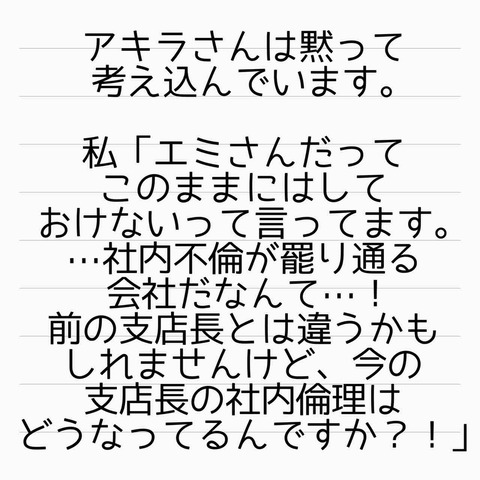 アキラさんは黙って
考え込んでいます。
私「エミさんだって
このままにはして
おけないって言ってます。
…社内不倫が罷り通る
会社だなんて…！
前の支店長とは違うかも
しれませんけど、今の
支店長の社内倫理は
どうなってるんですか？！」